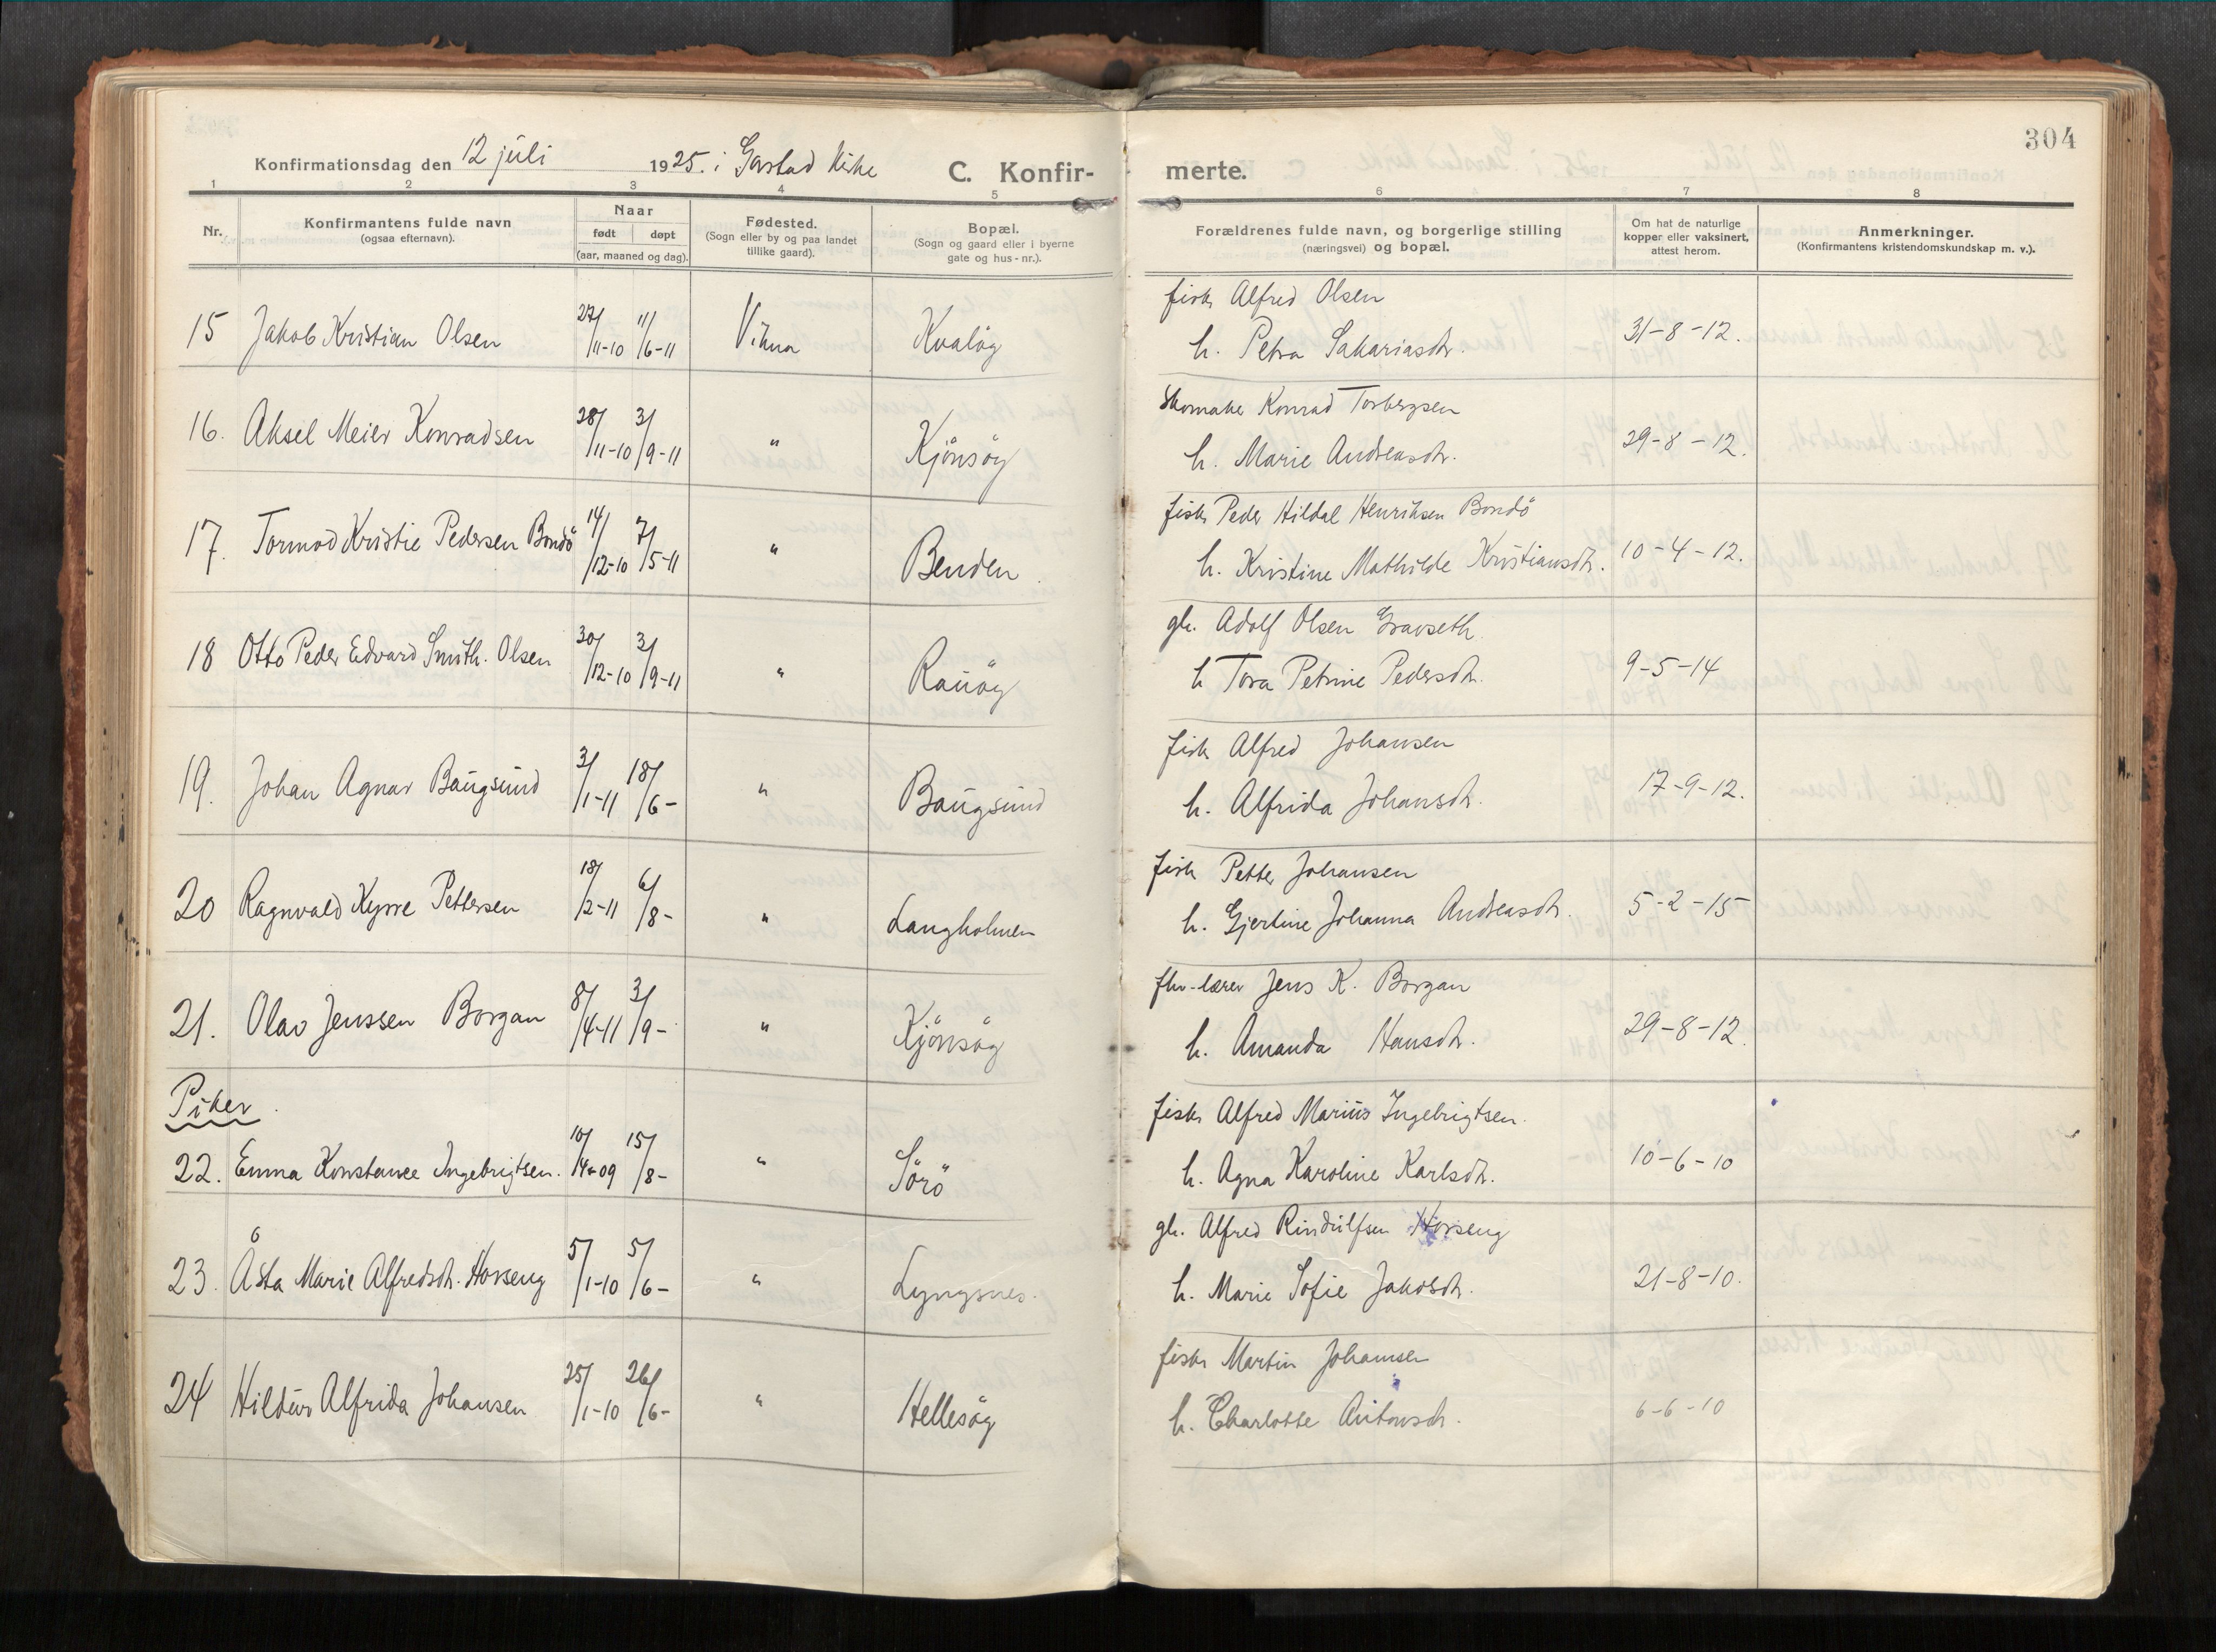 304
Konfirmationsdag den 12 júli 1925. i Garstad kirke C. Konfir- merte.
1 2 3 4 5 6 7 8
Nr. Konfirmantens fulde navn (ogsaa efternavn). Naar født døpt (aar, maaned og dag). Fødested. (Sogn eller by og paa landet tillike gaard). Bopæl. (Sogn og gaard eller i byerne gate og hus-nr.). Forældrenes fulde navn, og borgerlige stilling (næringsvei) og bopæl. Om hat de naturlige kopper eller vaksinert, attest herom. Anmerkninger. (Konfirmantens kristendomskundskap m. v.).
fisk Alfred Olsen
15 Jakob Kristian Olsen 27/11-10 11/6-11 Vikna Kvaløy h. Petra Sakariasdtr. 31-8-12.
Skomaker Konrad Torbergsen
16. Aksel Meier Konradsen 28/11-10 3/9-11 " Kjönsöy h. Marie Andreasdtr. 29-8-12.
fisk Peder Hildal Henriksen Bondö
17. Tormod Kristie Pedersen Bondö 14/12-10 7/5-11 " Benden h. Kristine Mathilde Kristiansdtr. 10-4-12.
gb. Adolf Olsen Gravseth
18 Otto Peder Edvard Smith. Olsen 30/12-10 3/9-11 " Raúöy h Tora Petrine Pedersdtr. 9-5-14
fisk Alfred Johansen
19. Johan Agnar Baúgsúnd 3/1-11 18/6- " Baúgsúnd h. Alfrida Johansdtr. 17-9-12.
fisk Petter Johansen
20 Ragnvald Kyrre Pettersen 18/2-11 6/8- " Langholmen h. Gjertine Johanna Andreasdtr. 5-2-15
fhv. lærer Jens K. Borgan
21. Olav Jenssen Borgan 8/4-11 3/9- " Kjönsöy h. Amanda Hansdtr. 29-8-12.
Piker
fisk Alfred Mariús Ingebrigtsen.
22. Emma Konstance Ingebrigtsen. 10/4-09 15/8- " Sörö h. Agna Karoline Karlsdtr. 10-6-10
gb. Alfred Rindúlfsen Horseng
23. Åsta Marie Alfredsdtr. Horseng 5/1-10 5/6- " Lyngsnes. h. Marie Sofie Jakobsdtr. 21-8-10.
fisk Martin Johansen
24 Hildúr Alfrida Johansen 25/1-10 26/6- " Hellesöy h. Charlotte Antonsdtr. 6-6-10